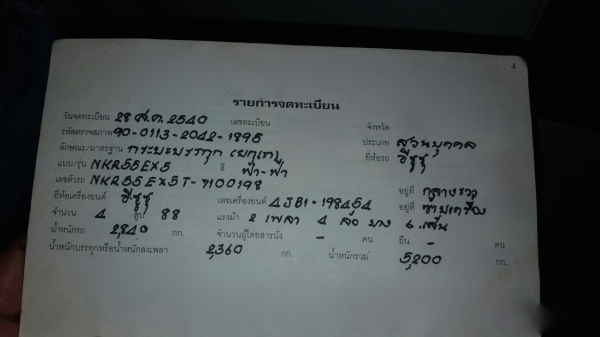 4
รายการจดทะเบียน
วันจดทะเบียน 28 ส.ค. 2540 เลขทะเบียน จังหวัด
รหัสตรวจสภาพ 90-0113-2042-1895 ประเภท ส่วนบุคคล
ลักษณะ/มาตรฐาน กระบะบรรทุก ยี่ห้อรถ อีซูซุ
แบบ/รุ่น NKR55EX5 สี ฟ้า-ฟ้า
เลขตัวรถ NKR55EX5T-7100198 อยู่ที่ กลางขวา
ยี่ห้อเครื่องยนต์ อีซูซุ เลขเครื่องยนต์ 4JB1-198454 อยู่ที่
จำนวน 4 สูบ 88 แรงม้า 2 เพลา 4 ล้อ ยาง 6 เส้น
น้ำหนักรถ 2,840 กก. จำนวนผู้โดยสารนั่ง - คน ยืน - คน
น้ำหนักบรรทุกหรือน้ำหนักลงเพลา 2,360 กก. น้ำหนักรวม 5,200 กก.